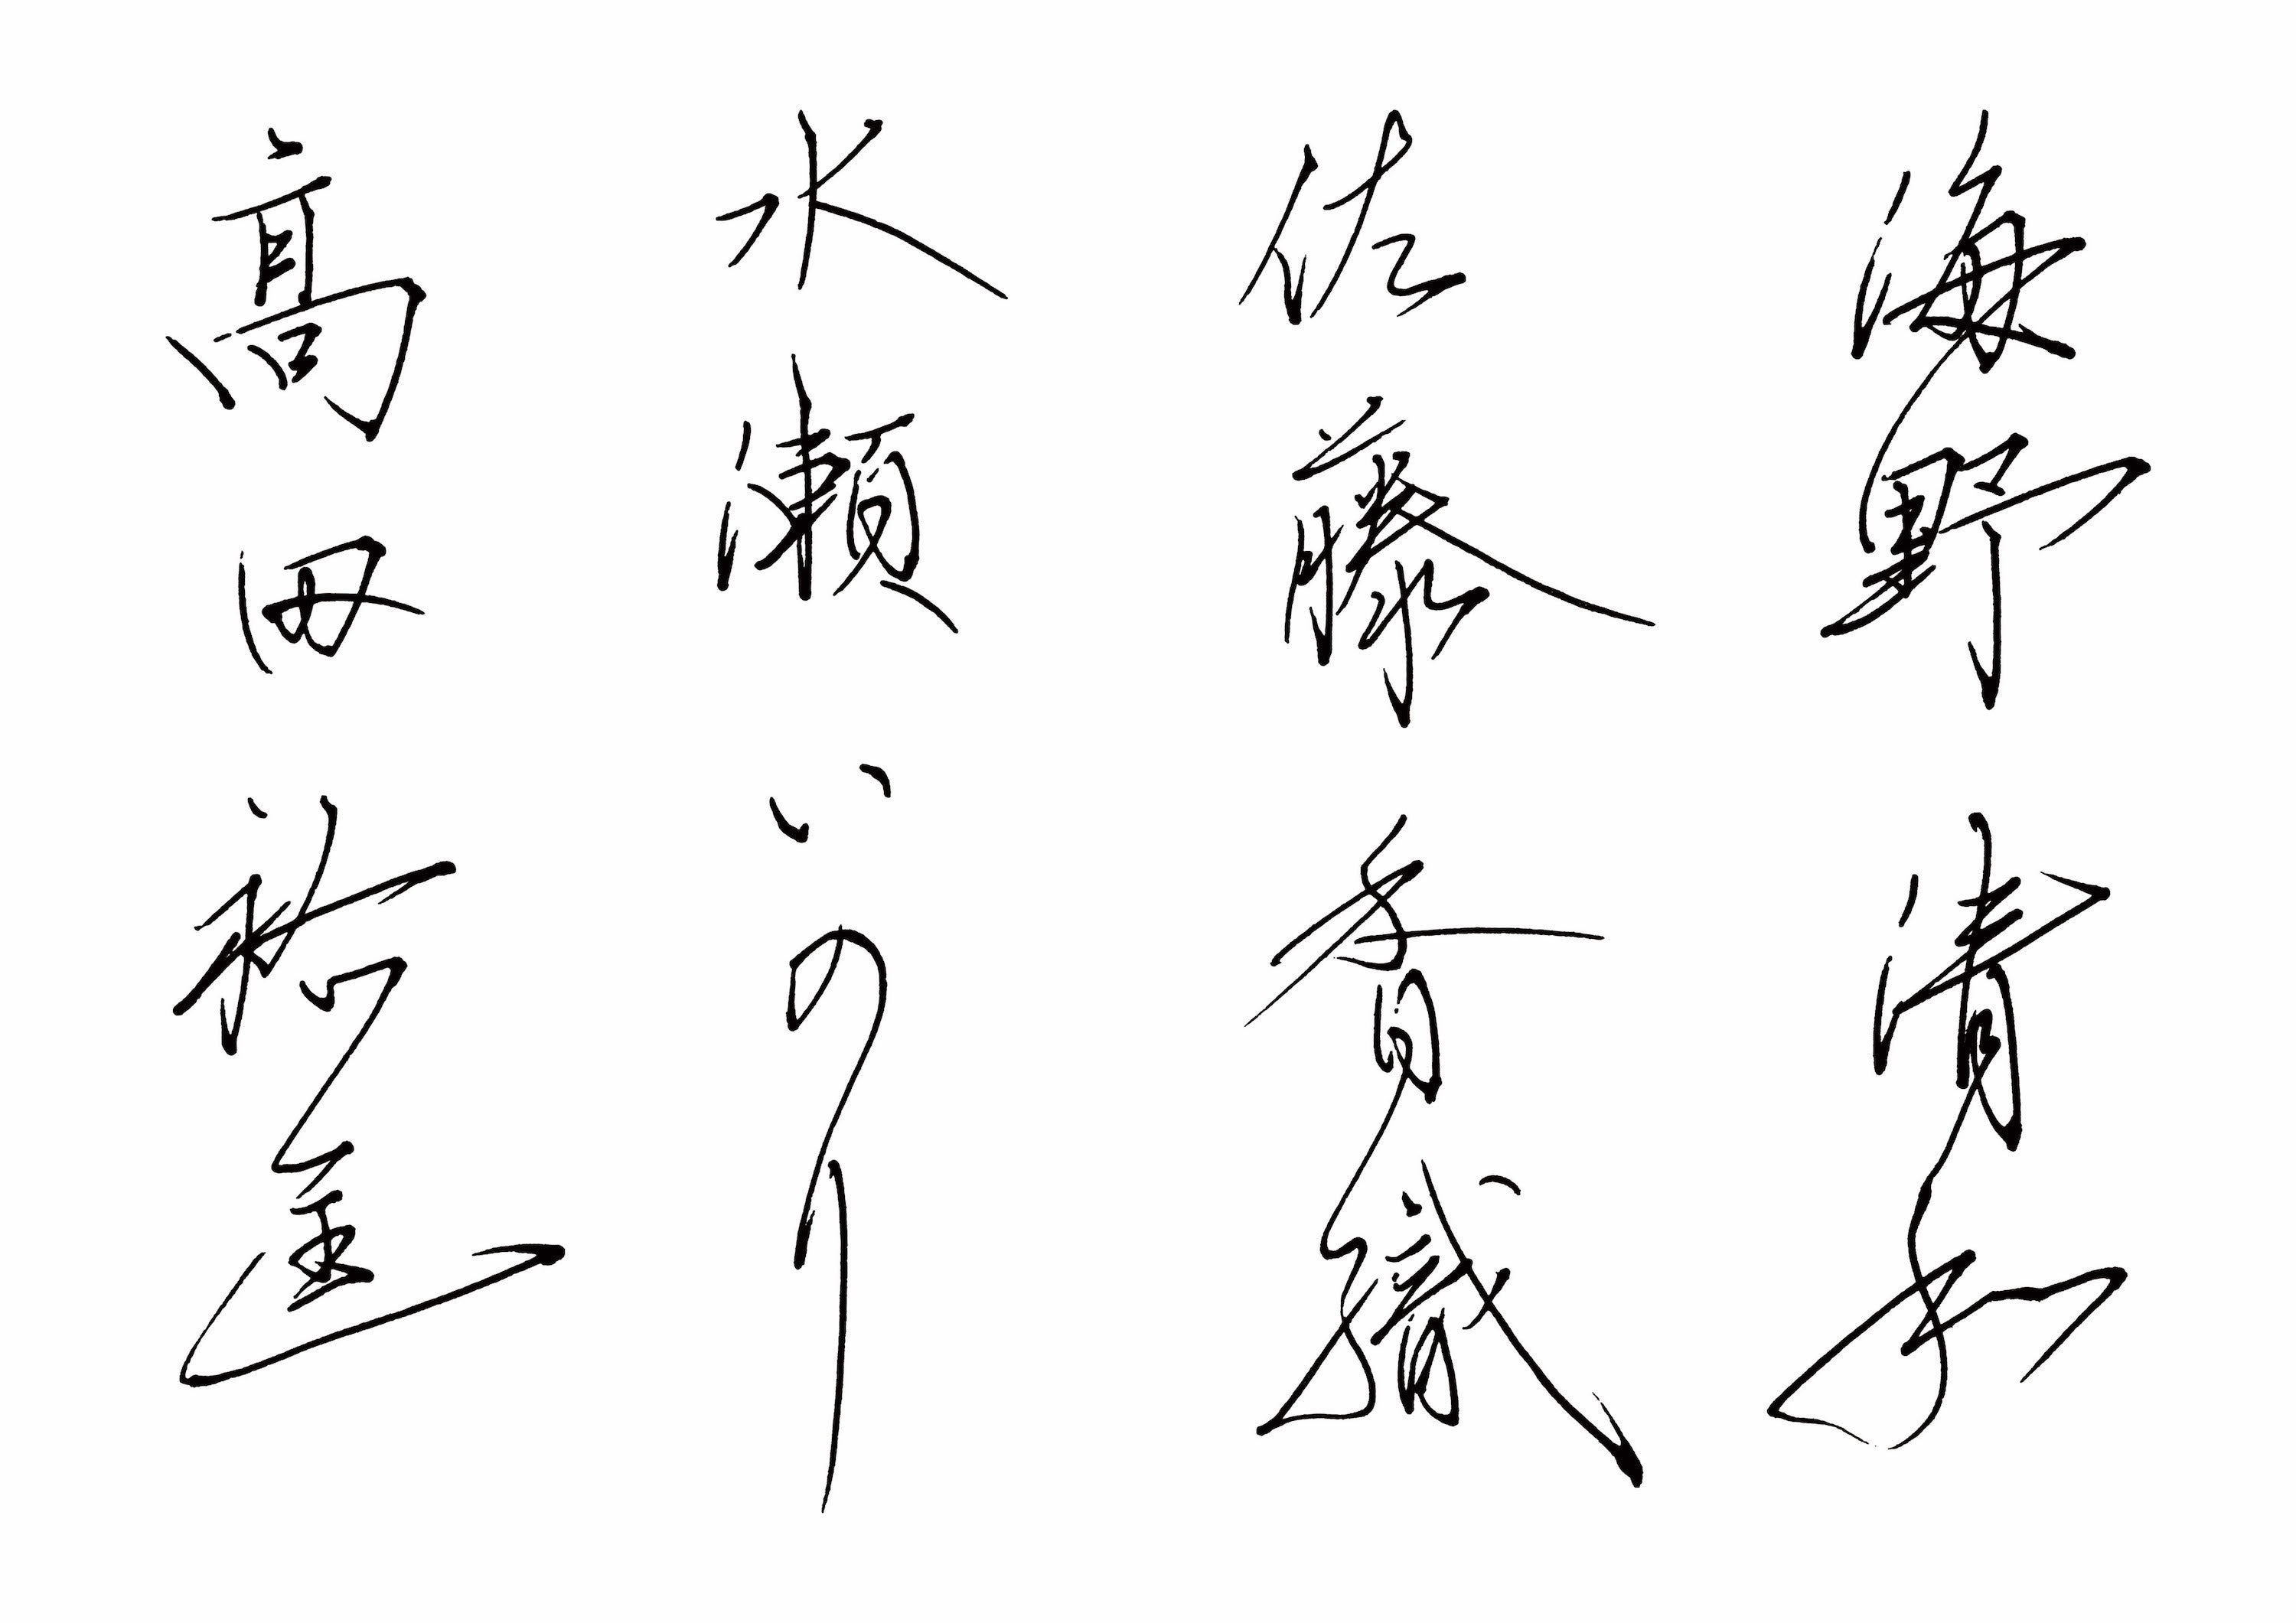 海野清子
佐藤香織
水瀬いのり
高田祐進